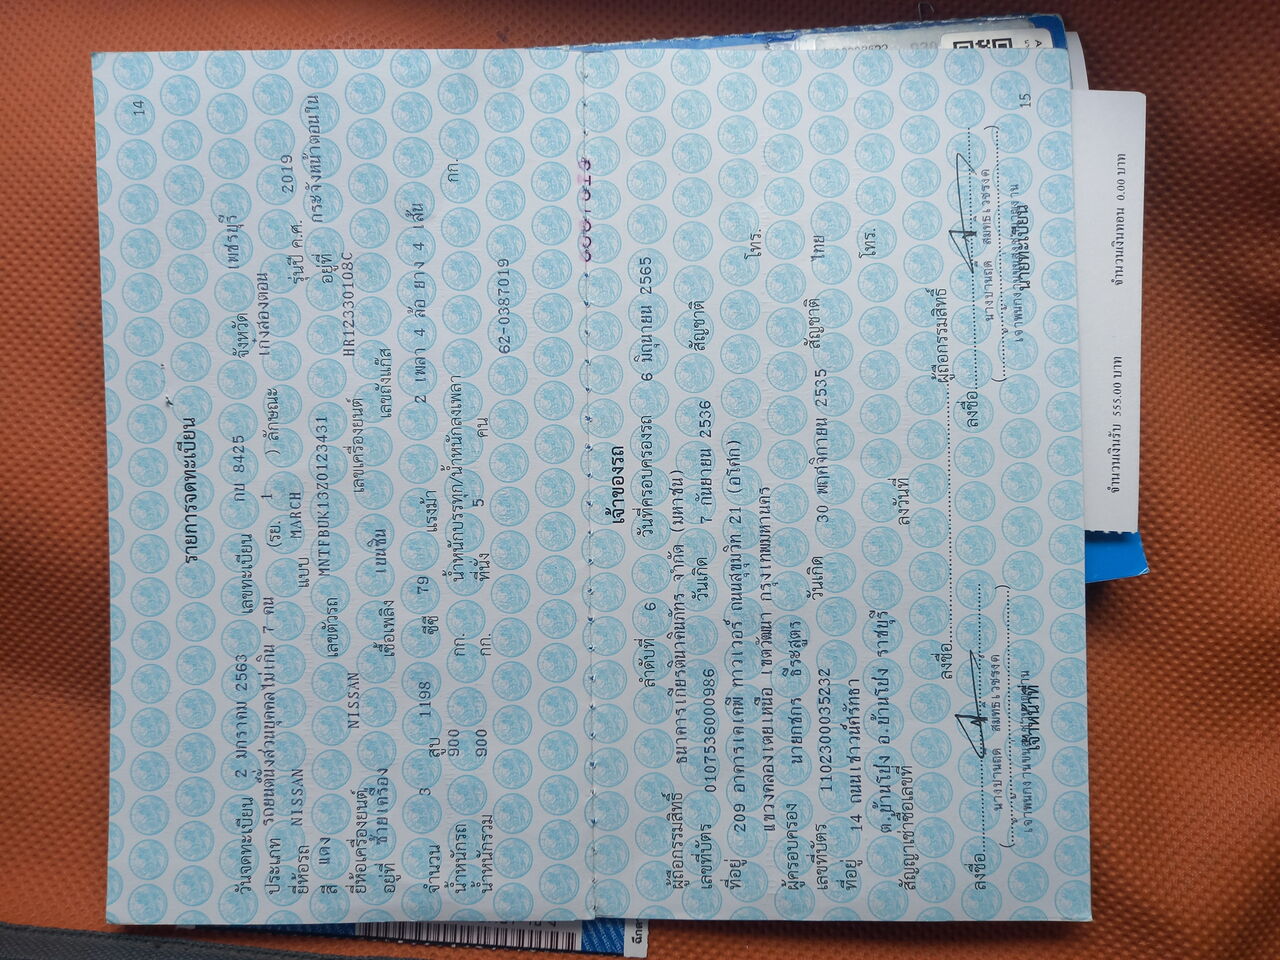 14
รายการจดทะเบียน
วันจดทะเบียน 2 มกราคม 2563 เลขทะเบียน กบ 8425 จังหวัด เพชรบุรี
ประเภท รถยนต์นั่งส่วนบุคคลไม่เกิน 7 คน (รย. 1 ) ลักษณะ เก๋งสองตอน
ยี่ห้อรถ NISSAN แบบ MARCH รุ่นปี ค.ศ. 2019
สี แดง เลขตัวรถ MNTFBUK13Z0123431 อยู่ที่ กระจังหน้าตอนใน
ยี่ห้อเครื่องยนต์ NISSAN เลขเครื่องยนต์ HR12330108C
อยู่ที่ ซ้ายเครื่อง เชื้อเพลิง เบนซิน เลขถังแก๊ส
จำนวน 3 สูบ 1198 ซีซี 79 แรงม้า 2 เพลา 4 ล้อ ยาง 4 เส้น
น้ำหนักรถ 900 กก. น้ำหนักบรรทุก/น้ำหนักลงเพลา กก.
น้ำหนักรวม 900 กก. ที่นั่ง 5 คน
62-0387019
เจ้าของรถ
ลำดับที่ 6 วันที่ครอบครองรถ 6 มิถุนายน 2565
ผู้ถือกรรมสิทธิ์ ธนาคารเกียรตินาคินภัทร จำกัด (มหาชน)
เลขที่บัตร 0107536000986 วันเกิด 7 กันยายน 2536 สัญชาติ
ที่อยู่ 209 อาคารเคเคพี ทาวเวอร์ ถนนสุขุมวิท 21 (อโศก)
แขวงคลองเตยเหนือ เขตวัฒนา กรุงเทพมหานคร โทร.
ผู้ครอบครอง นายกชกร ธีระสูตร
เลขที่บัตร 1102300035232 วันเกิด 30 พฤศจิกายน 2535 สัญชาติ ไทย
ที่อยู่ 14 ถนนเชาวน์ศรัทธา
ต.บ้านโป่ง อ.บ้านโป่ง ราชบุรี โทร.
สัญญาเช่าซื้อเลขที่ ลงวันที่
ลงชื่อ ผู้ถือกรรมสิทธิ์
ลงชื่อ ลงชื่อ
เจ้าหน้าที่ นายทะเบียน
15
จำนวนเงินรับ 555.00 บาท จำนวนเงินทอน 0.00 บาท